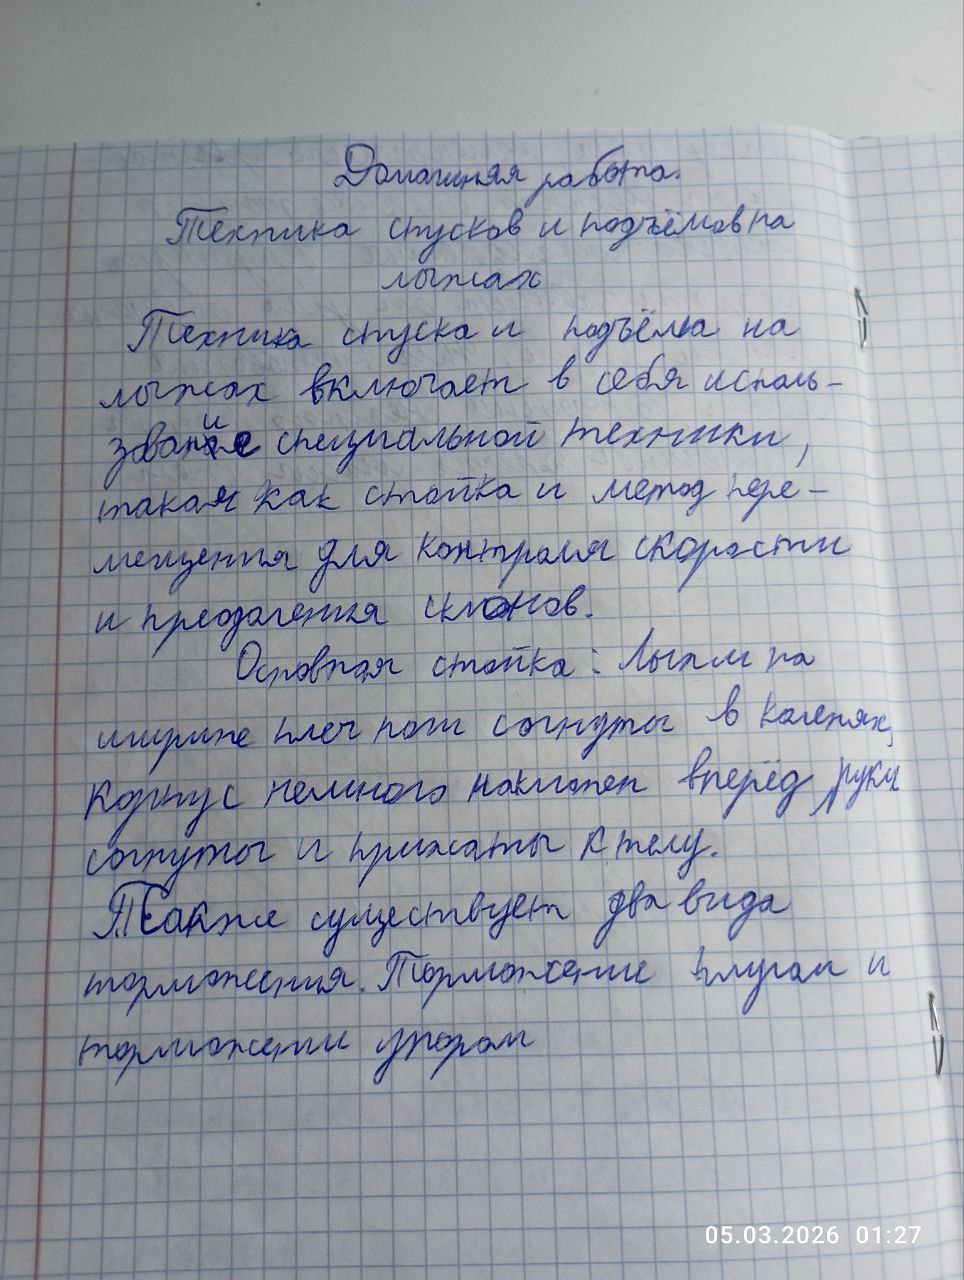 Домашняя работа.
Техника спусков и подъёмов на
лыжах
Техника спуска и подъёма на
лыжах включает в себя исполь-
звание специальной техники,
такая как стойка и метод пере-
мещения для контроля скорости
и преодаления склонов.
Основная стойка: Лыжи на
ширине плеч ноги согнуты в коленях,
корпус немного наклонен вперёд руки
согнуты и прижаты к телу.
Также существует два вида
торможения. Торможение плугом и
торможение упором
05.03.2026 01:27